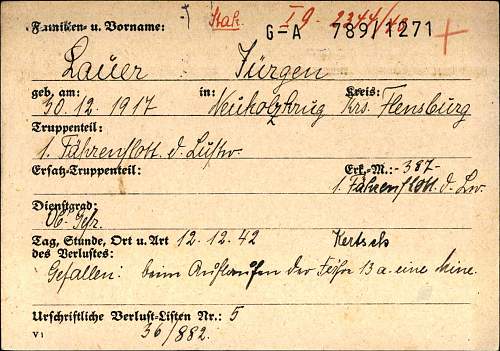 Familien- u. Vorname: Stak. I g. 2344/43 G=A 789/1271
Lauer Jürgen
geb. am: in: Kreis:
30.12.1917 Neuholzkrug Krs. Flensburg
Truppenteil:
1. Fährenflott. d. Luftw.
Ersatz-Truppenteil: Erk.-M.: -387-
1. Fährenflott. d. Lw.
Dienstgrad:
Ob. Gefr.
Tag, Stunde, Ort u. Art 12.12.42 Kertsch
des Verlustes:
Gefallen: beim Auflaufen der Fähre 13 a. eine Mine.
Urschriftliche Verlust-Listen Nr.: 5
V1 36/882.